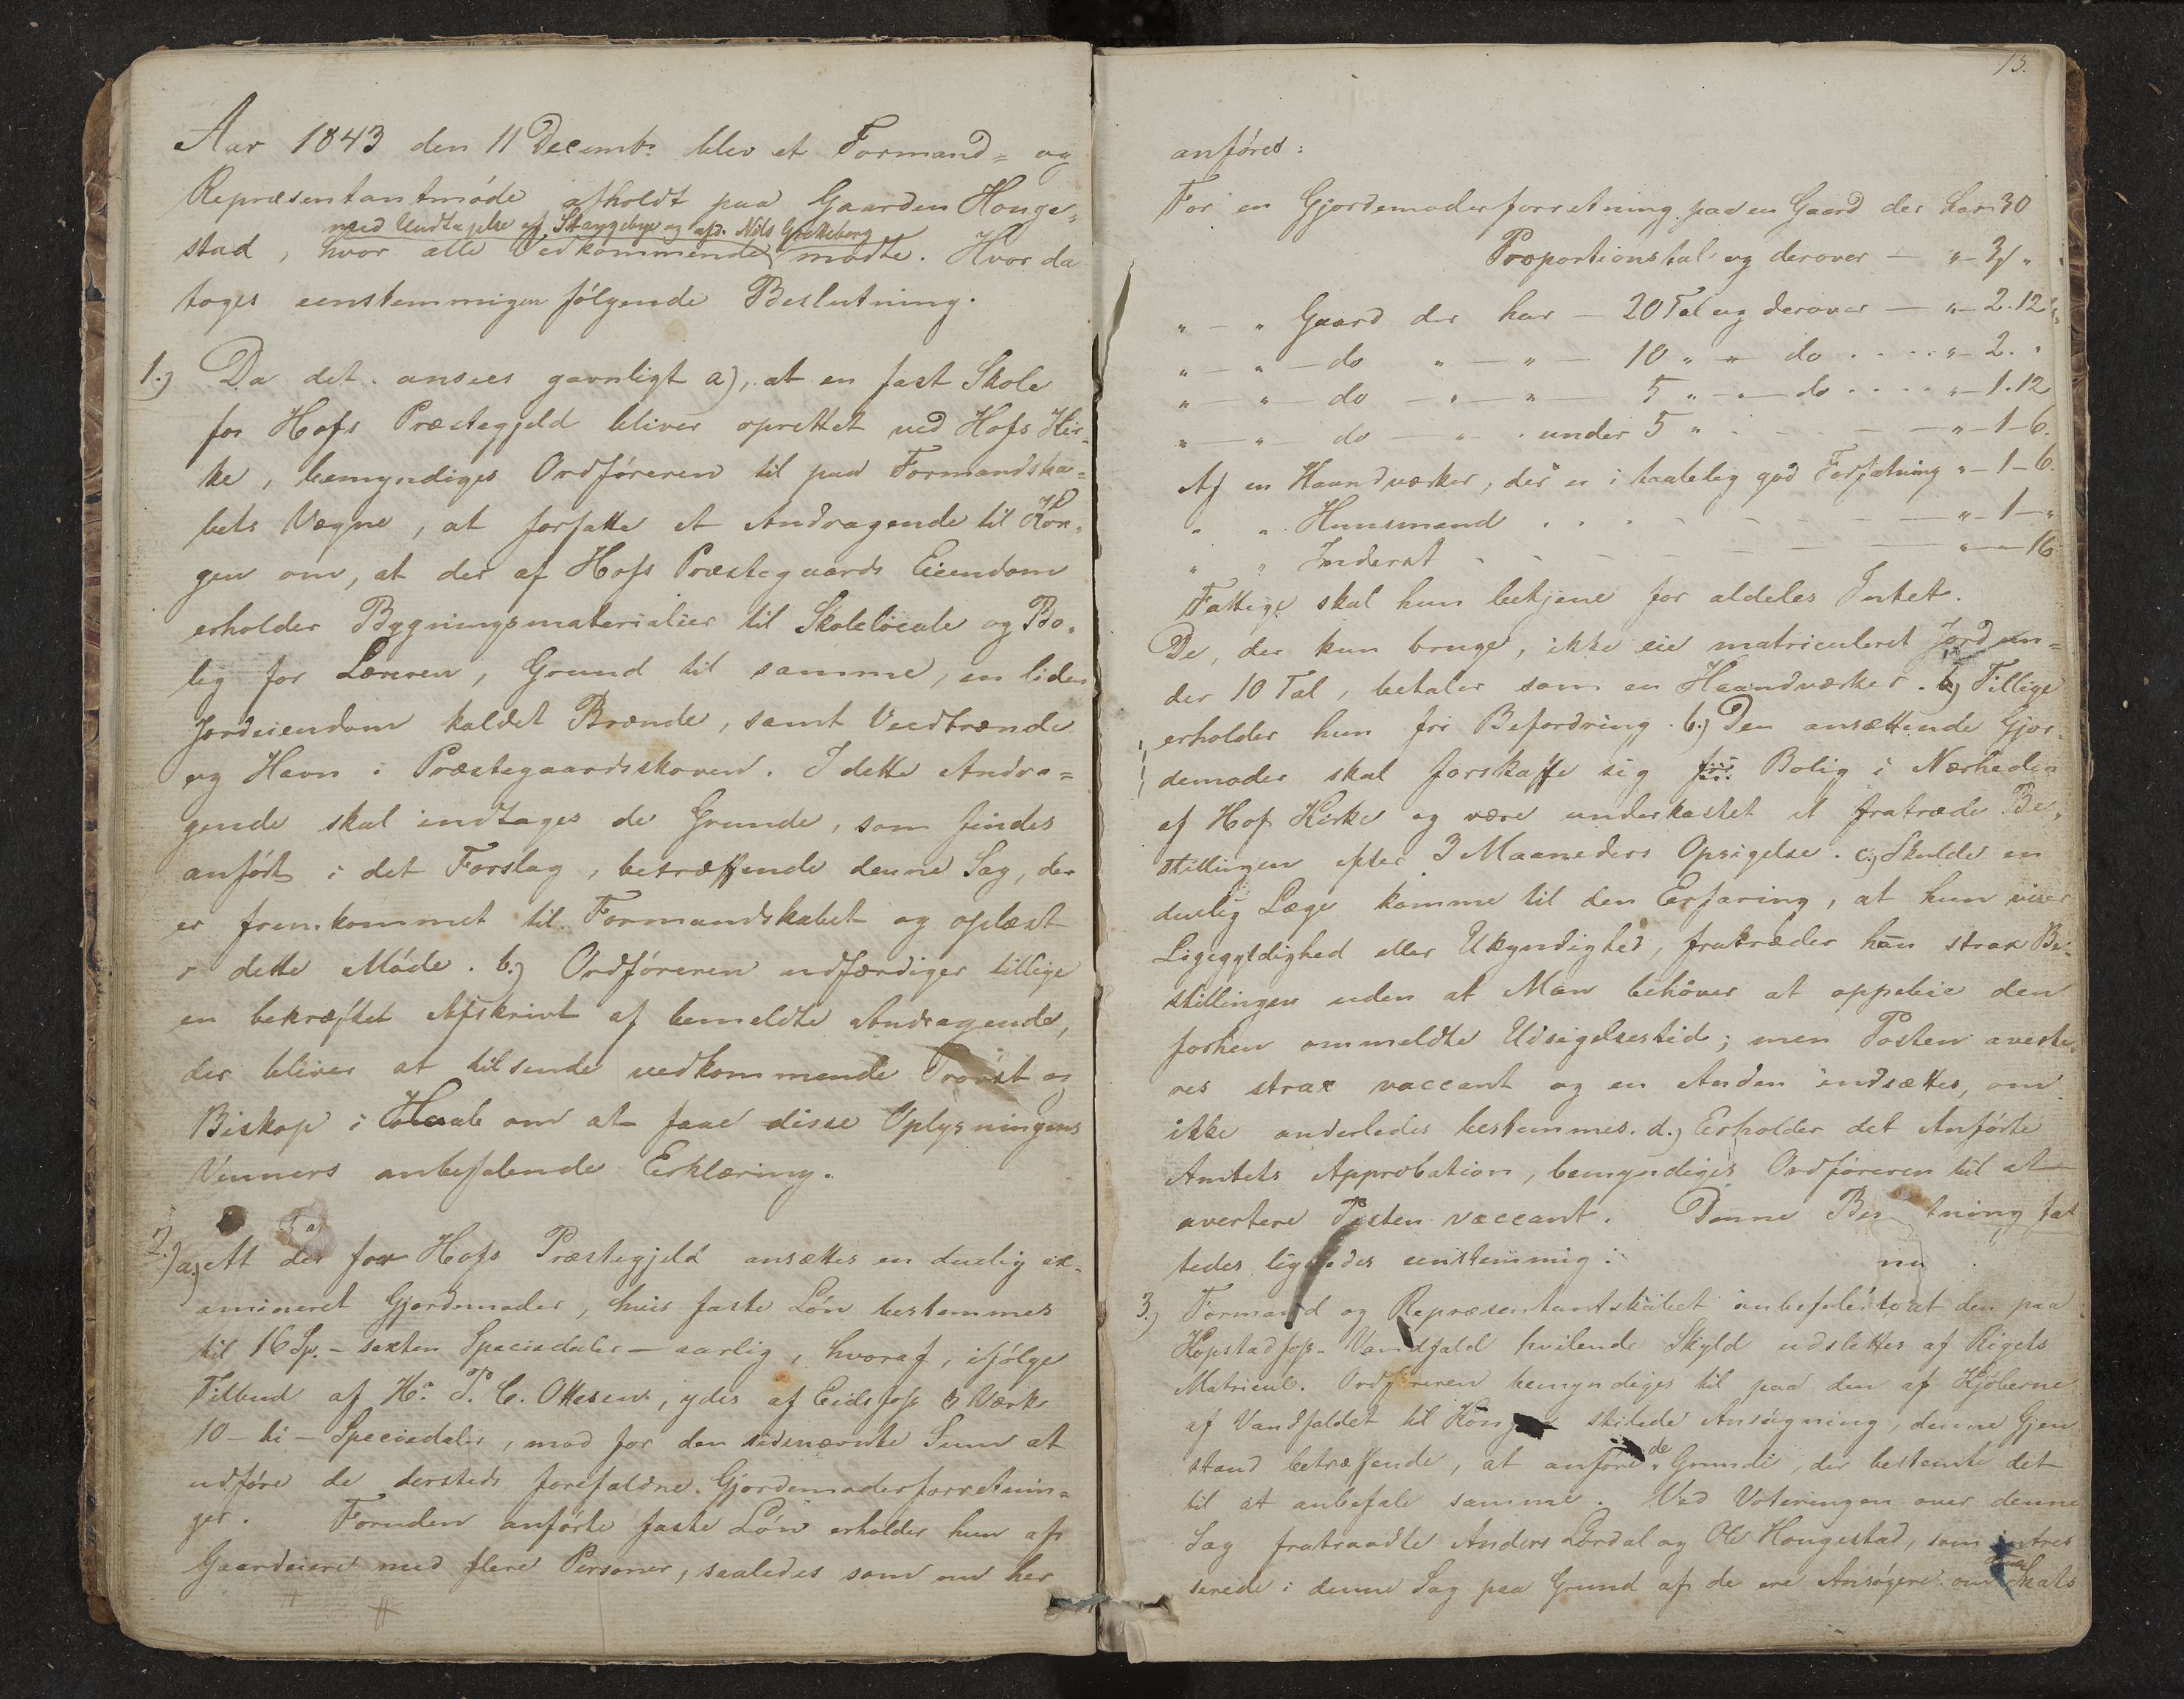 Aar 1843 den 11 Decembr blev et Formand- og
Repræsentantmöde afholdt paa Gaarden Houge-
med Undtagelse af Stangebye og afd. Nils Gretteborg
stad, hvor alle Vedkommende mødte. Hvor da
toges eenstemmigen fölgende Beslutning.
1.) Da det ansees gavnligt a), at en fast Skole
for Hofs Præstegjeld bliver oprettet ved Hofs Kir-
ke, bemyndiges Ordföreren til paa Formandska-
bets Vegne, at forfatte et Andragende til Kon-
gen om, at der af Hofs Præstegaards Eiendom
erholder Bygningsmaterialier til Skolelocale og Bo-
lig for Læreren, Grund til samme, en liden
Jordeiendom kaldet Brænde, samt Veedbrænde
og Havn i Præstegaardsskoven. I dette Andra-
gende skal indtages de Grunde, som findes
anfört i det Forslag, betræffende denne Sag, der
er fremkommet til Formandskabet og oplæst
i dette Möde. b.) Ordföreren udfærdiger tillige
en bekræftet Afskrivt af bemeldte Andragende,
der bliver at tilsende vedkommende Provst og
Biskop i Haab om at faae disse Oplysningens
Venners anbefalende Erklæring.
2.) a.) At der for Hofs Præstegjeld ansættes en duelig ex-
amineret Gjordemoder, hvis faste Lön bestemmes
til 16 Sp. - sexten Speciedaler - aarlig, hvoraf, ifölge
Tilbud af Hr. P. C. Ottesen, ydes af Eidsfos Værk
10 - ti - Speciedaler, mod for den sidsnævnte Sum at
udföre de dersteds forefaldne Gjordemoderforretnin-
ger. Foruden anförte faste Lön erholder hun af
Gaardeiere med flere Personer, saaledes som nu her
13.
anföres:
For en Gjordemoderforretning paa en Gaard der har 30
Proportionstal og derover — " - 3 "
" — " Gaard der har — 20 Tal og derover — " - 2. 12
" — " — do " — " — 10 " " do . . . . " - 2. "
" — " — do — " — " — 5 " — " — do . . . . " - 1. 12
" — " — do — " — " under 5 " - - - — " - 1 - 6.
Af en Haandværker, der er i taalelig god Forfatning " - 1 - 6.
" " Huusmand . . . - - - — " - 1 - "
" " Inderst - - - - — " - " - 16
Fattige skal hun betjene for aldeles Intet.
De, der kun bruge, ikke eie matriculeret Jord un-
der 10 Tal, betaler som en Haandværker. Tillige
erholder hun fri Befordring. b.) Den ansættende Gjor-
demoder skal forskaffe sig fri Bolig i Nærheden
af Hof Kirke og være underkastet at fratræde Be-
stillingen efter 3 Maaneders Opsigelse. c.) Skulde en
duelig Læge komme til den Erfaring, at hun viser
Ligegyldighed eller Ukyndighed, fratræder hun strax Be-
stillingen uden at Man behöver at oppebie den
forhen ommeldte Udsigelsestid; men Posten averte-
res strax vaccant og en Anden indsættes, om
ikke anderledes bestemmes. d.) Erholder det Anförte
Amtets Approbation, bemyndiges Ordföreren til at
avertere Posten vaccant. Denne Bes tning fat
tedes lig edes eenstemmig.
3.) Formand og Repræsentantskabet anbefaler at den paa
Kopstadfos Vandfald hvilende Skyld udslettes af Rigets
Matricul. Ordföreren bemyndiges til paa den af Kjöberne
af Vandfaldet til Kongen skilede Ansögning, denne Gjen
stand betræffende, at anföre de Grunde, der bestemte det
til at anbefale samme. Ved Voteringen over denne
Sag fratraadte Anders Lördal og Ole Hougestad, som intres
serede i denne Sag paa Grund af de ere Ansögere om Skats